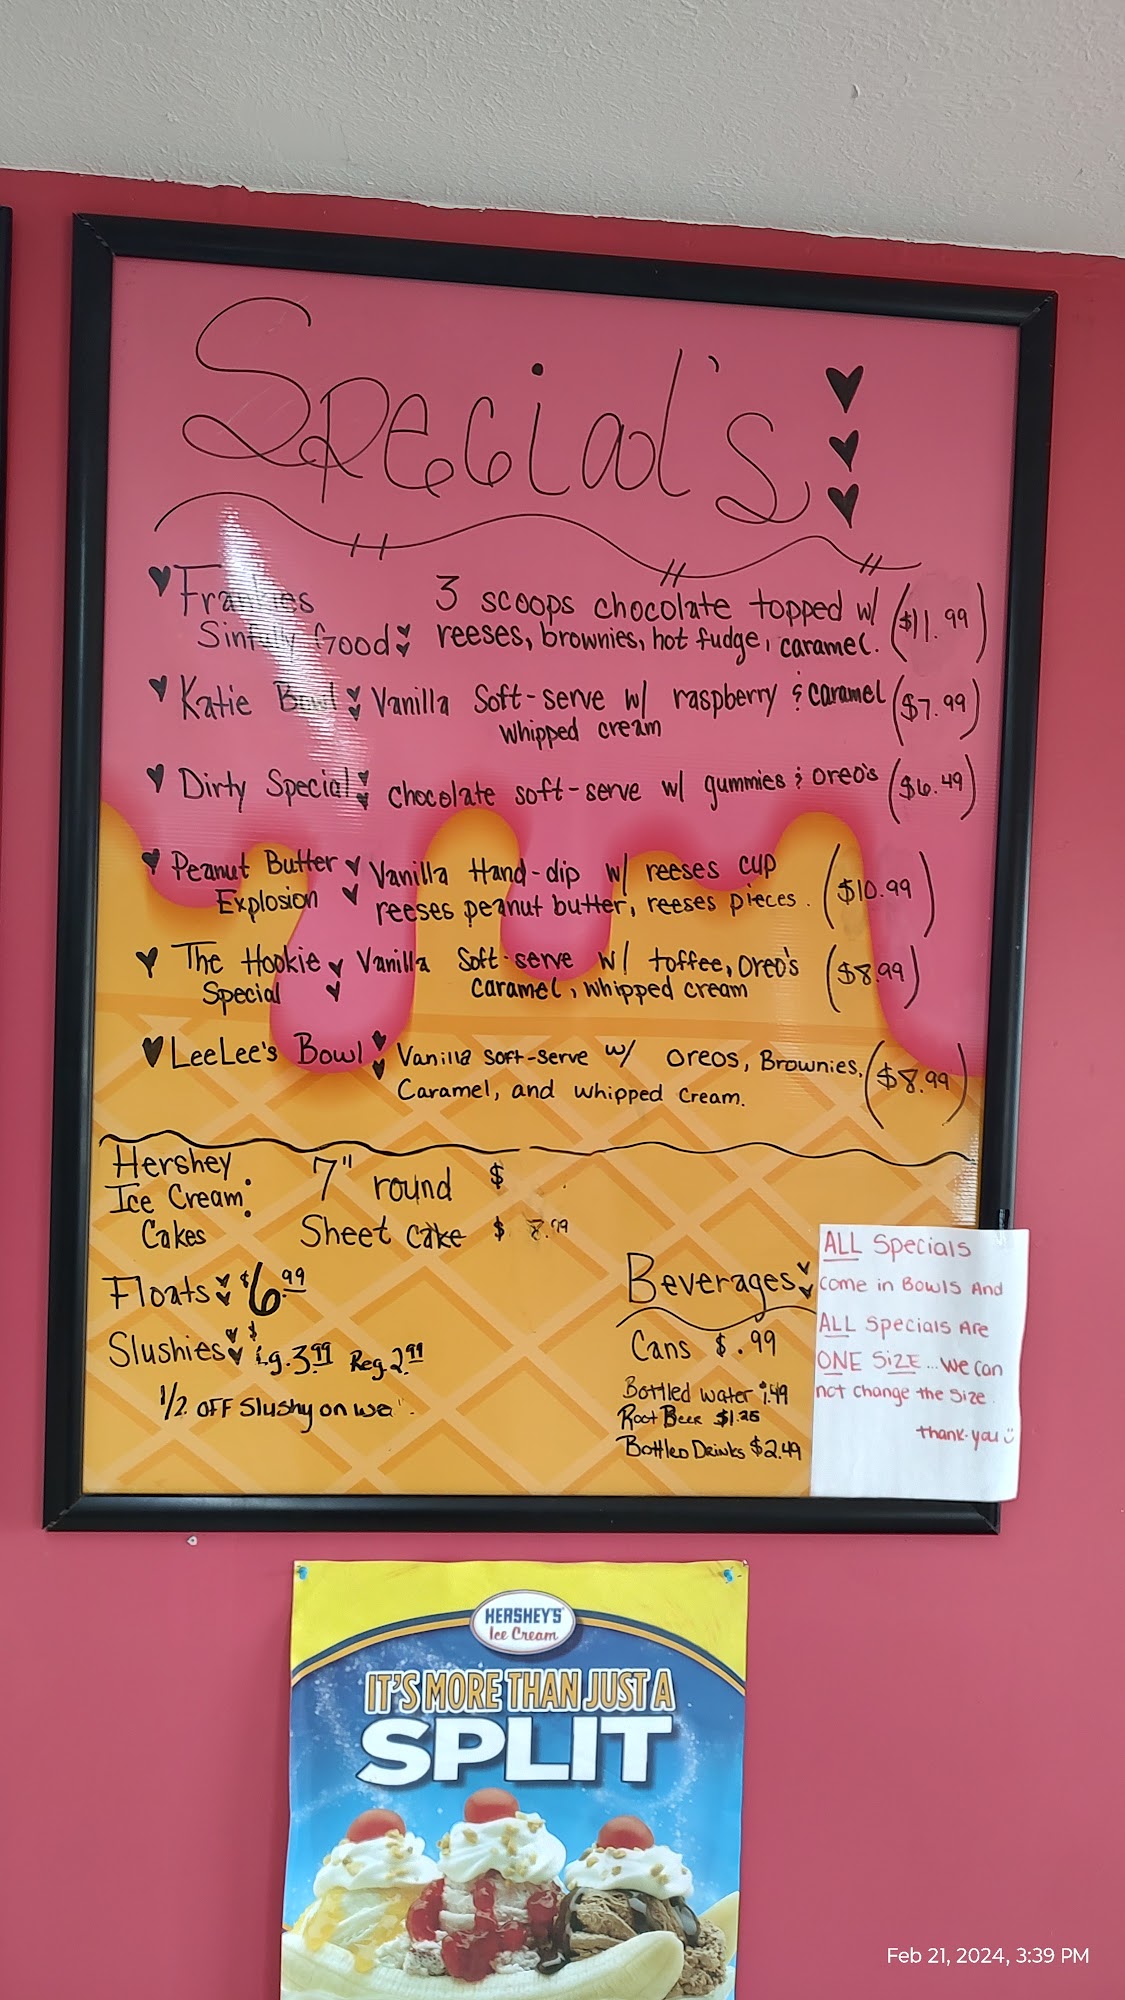 Special's
Frankies 3 scoops chocolate topped w/ ($11.99)
Sinfully Good: reeses, brownies, hot fudge, caramel.
Katie Bowl: Vanilla Soft-serve w/ raspberry & caramel ($7.99)
whipped cream
Dirty Special: chocolate soft-serve w/ gummies & oreo's ($6.49)
Peanut Butter Vanilla Hand-dip w/ reeses cup ($10.99)
Explosion reeses peanut butter, reeses pieces.
The Hookie Vanilla Soft-serve w/ toffee, Oreo's ($8.99)
Special caramel, whipped cream
LeeLee's Bowl: Vanilla soft-serve w/ oreos, Brownies, ($8.99)
Caramel, and whipped cream.
Hershey 7" round $
Ice Cream:
Cakes Sheet cake $ 8.99
Floats: $6.99
Slushies: $ Lg. 3.99 Reg. 2.99
1/2 OFF Slushy on we
Beverages:
Cans $.99
Bottled water 1.49
Root Beer $1.25
Bottled Drinks $2.49
ALL Specials
come in Bowls And
ALL Specials Are
ONE SiZE...We can
not change the Size.
thank-you
HERSHEY'S
Ice Cream
IT'S MORE THAN JUST A
SPLIT
Feb 21, 2024, 3:39 PM